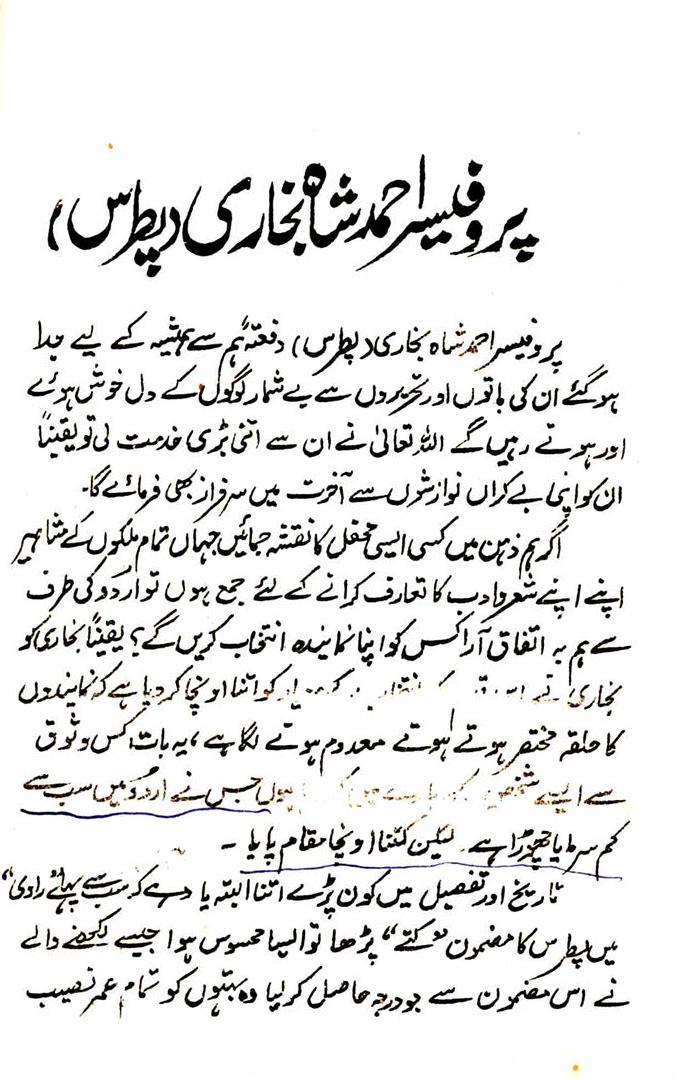 پروفیسر احمد شاہ بخاری (پطرس)
پروفیسر احمد شاہ بخاری (پطرس) دفعتہً ہم سے ہمیشہ کے لیے جدا
ہو گئے ان کی باتوں اور تحریروں سے بے شمار لوگوں کے دل خوش ہوئے
اور ہوتے رہیں گے اللہ تعالیٰ نے ان سے اتنی بڑی خدمت لی تو یقیناً
ان کو اپنی بے کراں نوازشوں سے آخرت میں سرفراز بھی فرمائے گا۔
اگر ہم ذہن میں کسی ایسی محفل کا نقشہ جمائیں جہاں تمام ملکوں کے مشاہیر
اپنے اپنے شعر و ادب کا تعارف کرانے کے لئے جمع ہوں تو اردو کی طرف
سے ہم بہ اتفاق آرا کس کو اپنا نمایندہ انتخاب کریں گے؟ یقیناً بخاری کو
بخاری نے اس کے معیار کو اتنا اونچا کر دیا ہے کہ نمایندوں
کا حلقہ مختصر ہوتے ہوتے معدوم ہونے لگا ہے، یہ بات کس وثوق
سے ایسے شخص ہوں جس نے اردو میں سب سے
کم سرمایہ چھوڑا ہے لیکن کتنا اونچا مقام پایا ۔
تاریخ اور تفصیل میں کون پڑے اتنا البتہ یاد ہے کہ سب سے پہلے "راوی"
میں پطرس کا مضمون "کتے" پڑھا تو ایسا محسوس ہوا جیسے لکھنے والے
نے اس مضمون سے جو درجہ حاصل کر لیا وہ بہتوں کو تمام عمر نصیب